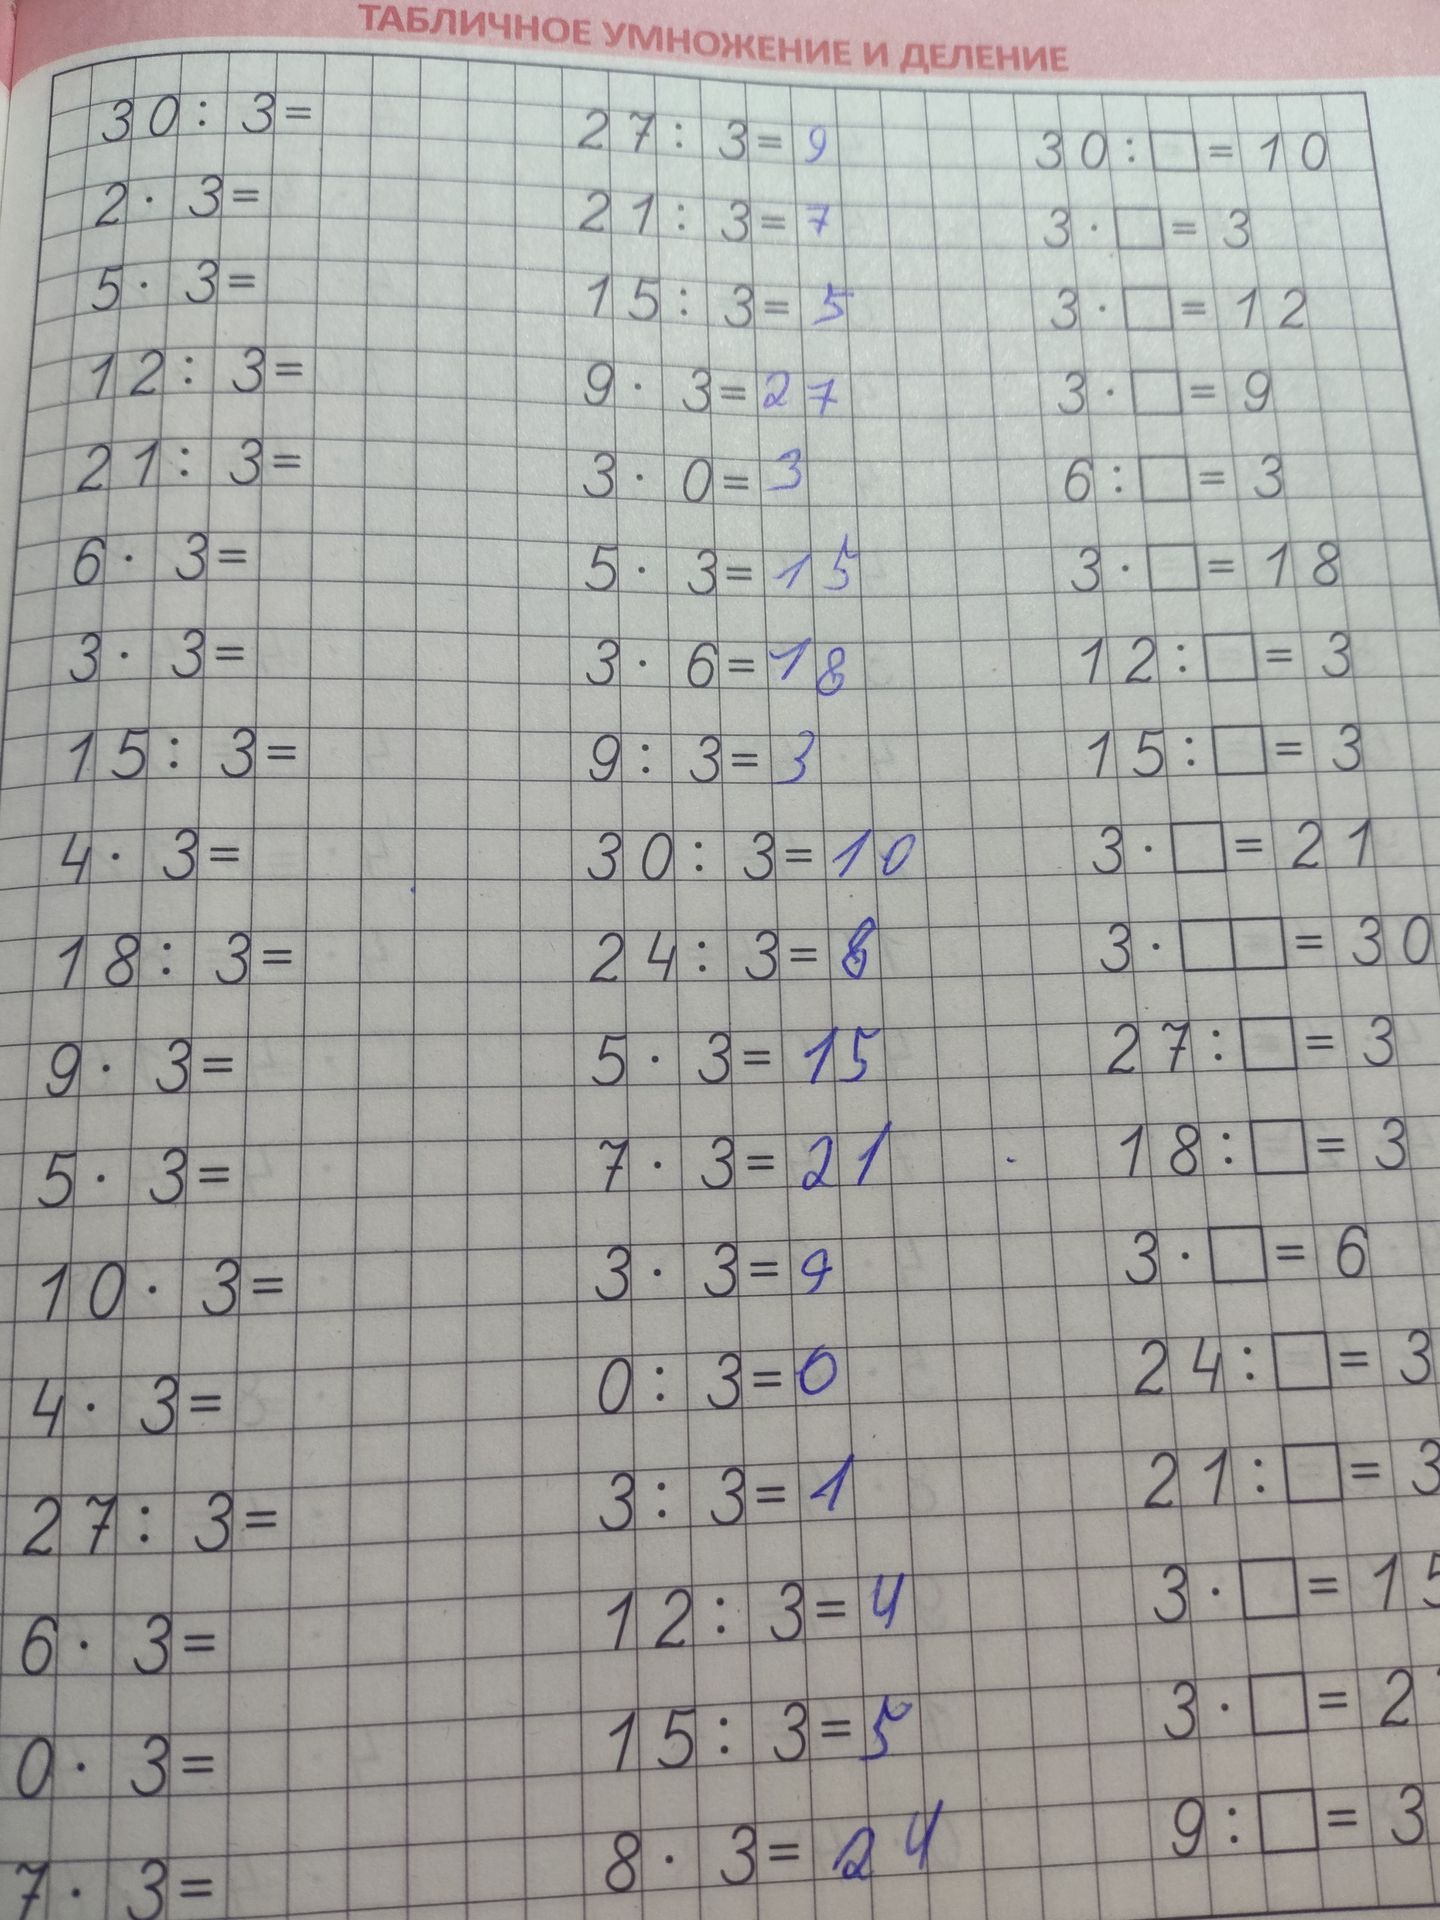 ТАБЛИЧНОЕ УМНОЖЕНИЕ И ДЕЛЕНИЕ
30 : 3 =
2 · 3 =
5 · 3 =
12 : 3 =
21 : 3 =
6 · 3 =
3 · 3 =
15 : 3 =
4 · 3 =
18 : 3 =
9 · 3 =
5 · 3 =
10 · 3 =
4 · 3 =
27 : 3 =
6 · 3 =
0 · 3 =
7 · 3 =
27 : 3 = 9
21 : 3 = 7
15 : 3 = 5
9 · 3 = 27
3 · 0 = 3
5 · 3 = 15
3 · 6 = 18
9 : 3 = 3
30 : 3 = 10
24 : 3 = 8
5 · 3 = 15
7 · 3 = 21
3 · 3 = 9
0 : 3 = 0
3 : 3 = 1
12 : 3 = 4
15 : 3 = 5
8 · 3 = 24
30 : □ = 10
3 · □ = 3
3 · □ = 12
3 · □ = 9
6 : □ = 3
3 · □ = 18
12 : □ = 3
15 : □ = 3
3 · □ = 21
3 · □□ = 30
27 : □ = 3
18 : □ = 3
3 · □ = 6
24 : □ = 3
21 : □ = 3
3 · □ = 15
3 · □ = 2
9 : □ = 3